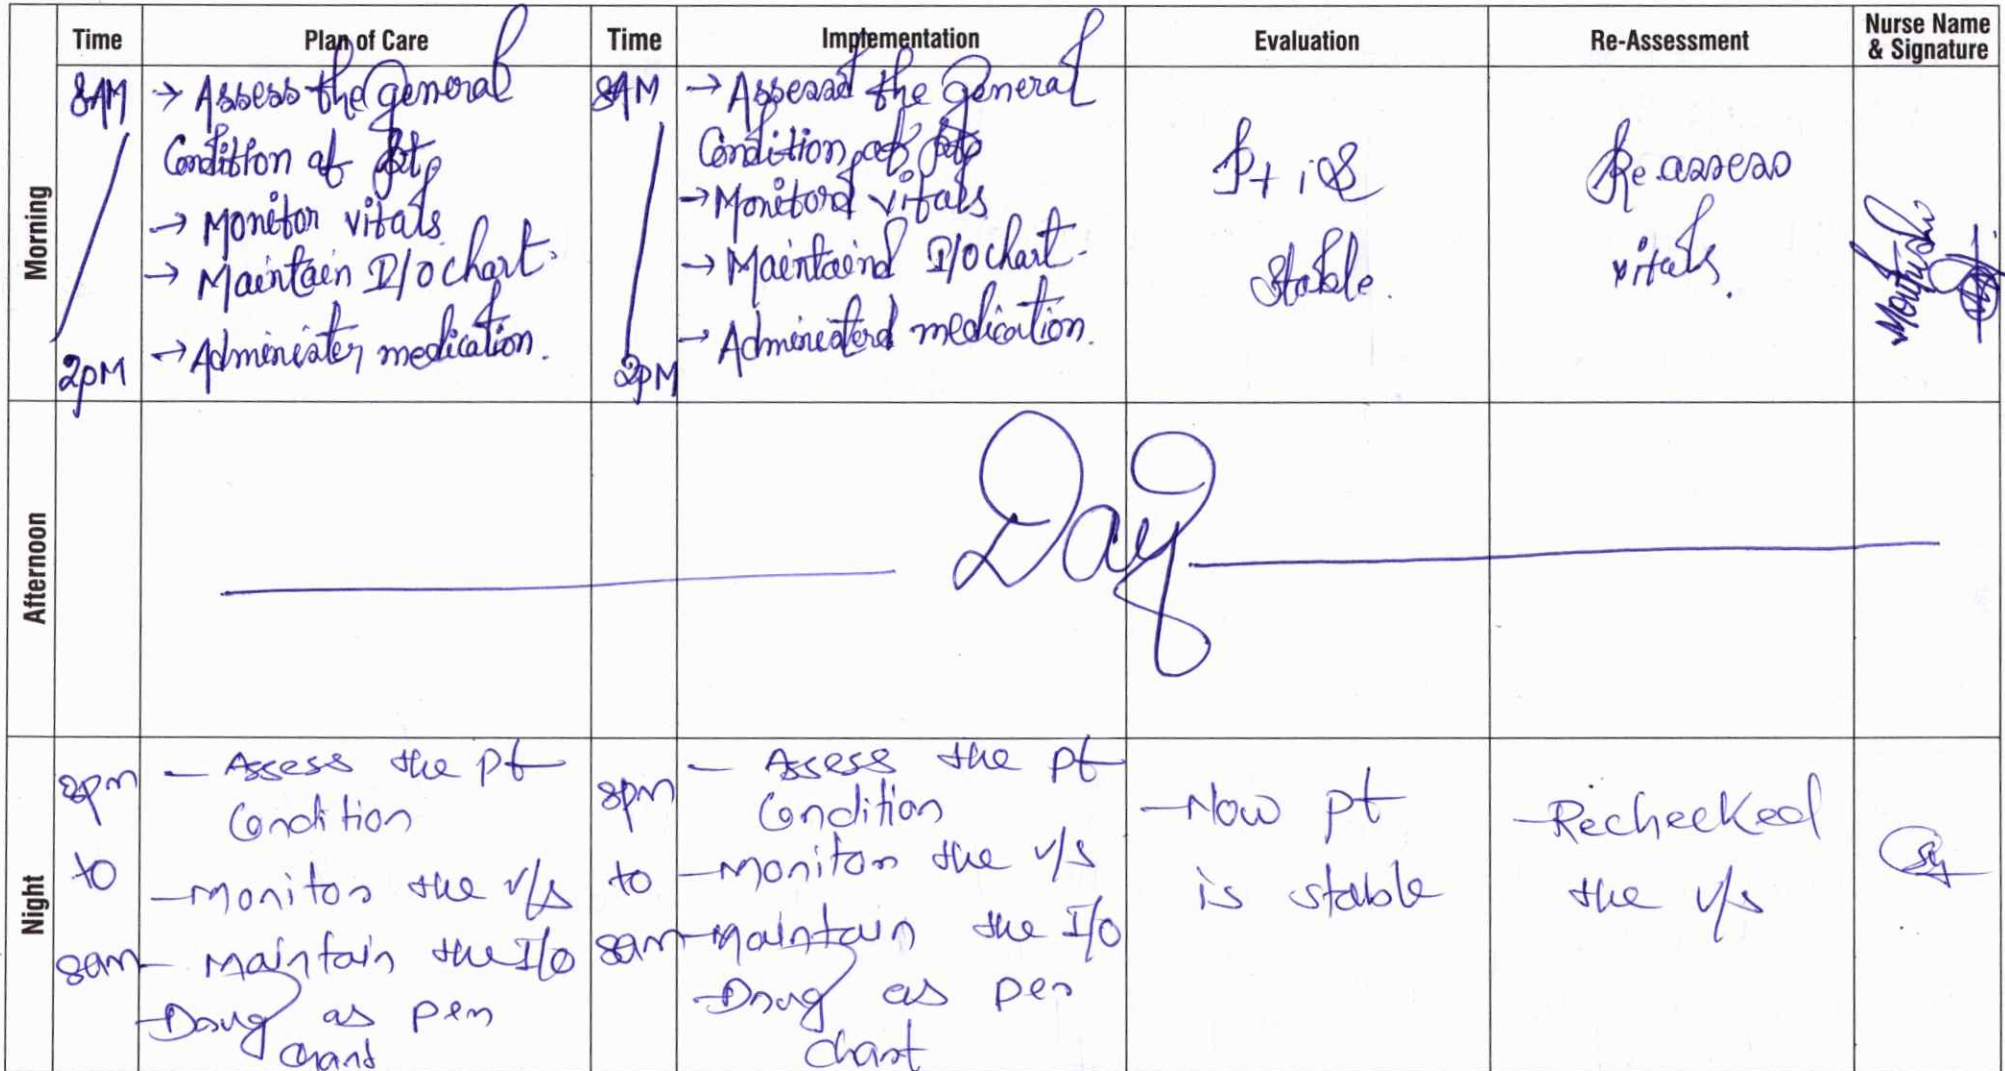 Time Plan of Care Time Implementation Evaluation Re-Assessment Nurse Name & Signature
Morning
8AM
2pM
→ Assess the general
Condition of pt
→ Monitor vitals
→ Maintain I/O chart.
→ Administer medication.
8AM
2pM
→ Assessd the General
Condition of pt
→ Monitord vitals
→ Maintaind I/O chart.
→ Administerd medication.
Pt is
Stable.
Re assess
vitals.
Afternoon
Day
Night
8pm
to
8am
- Assess the pt
Condition
- Monitor the v/s
- Maintain the I/O
- Drug as per
chart
8pm
to
8am
- Assess the pt
Condition
- Monitor the v/s
- Maintain the I/O
- Drug as per
chart
- Now pt
is stable
- Rechecked
the v/s